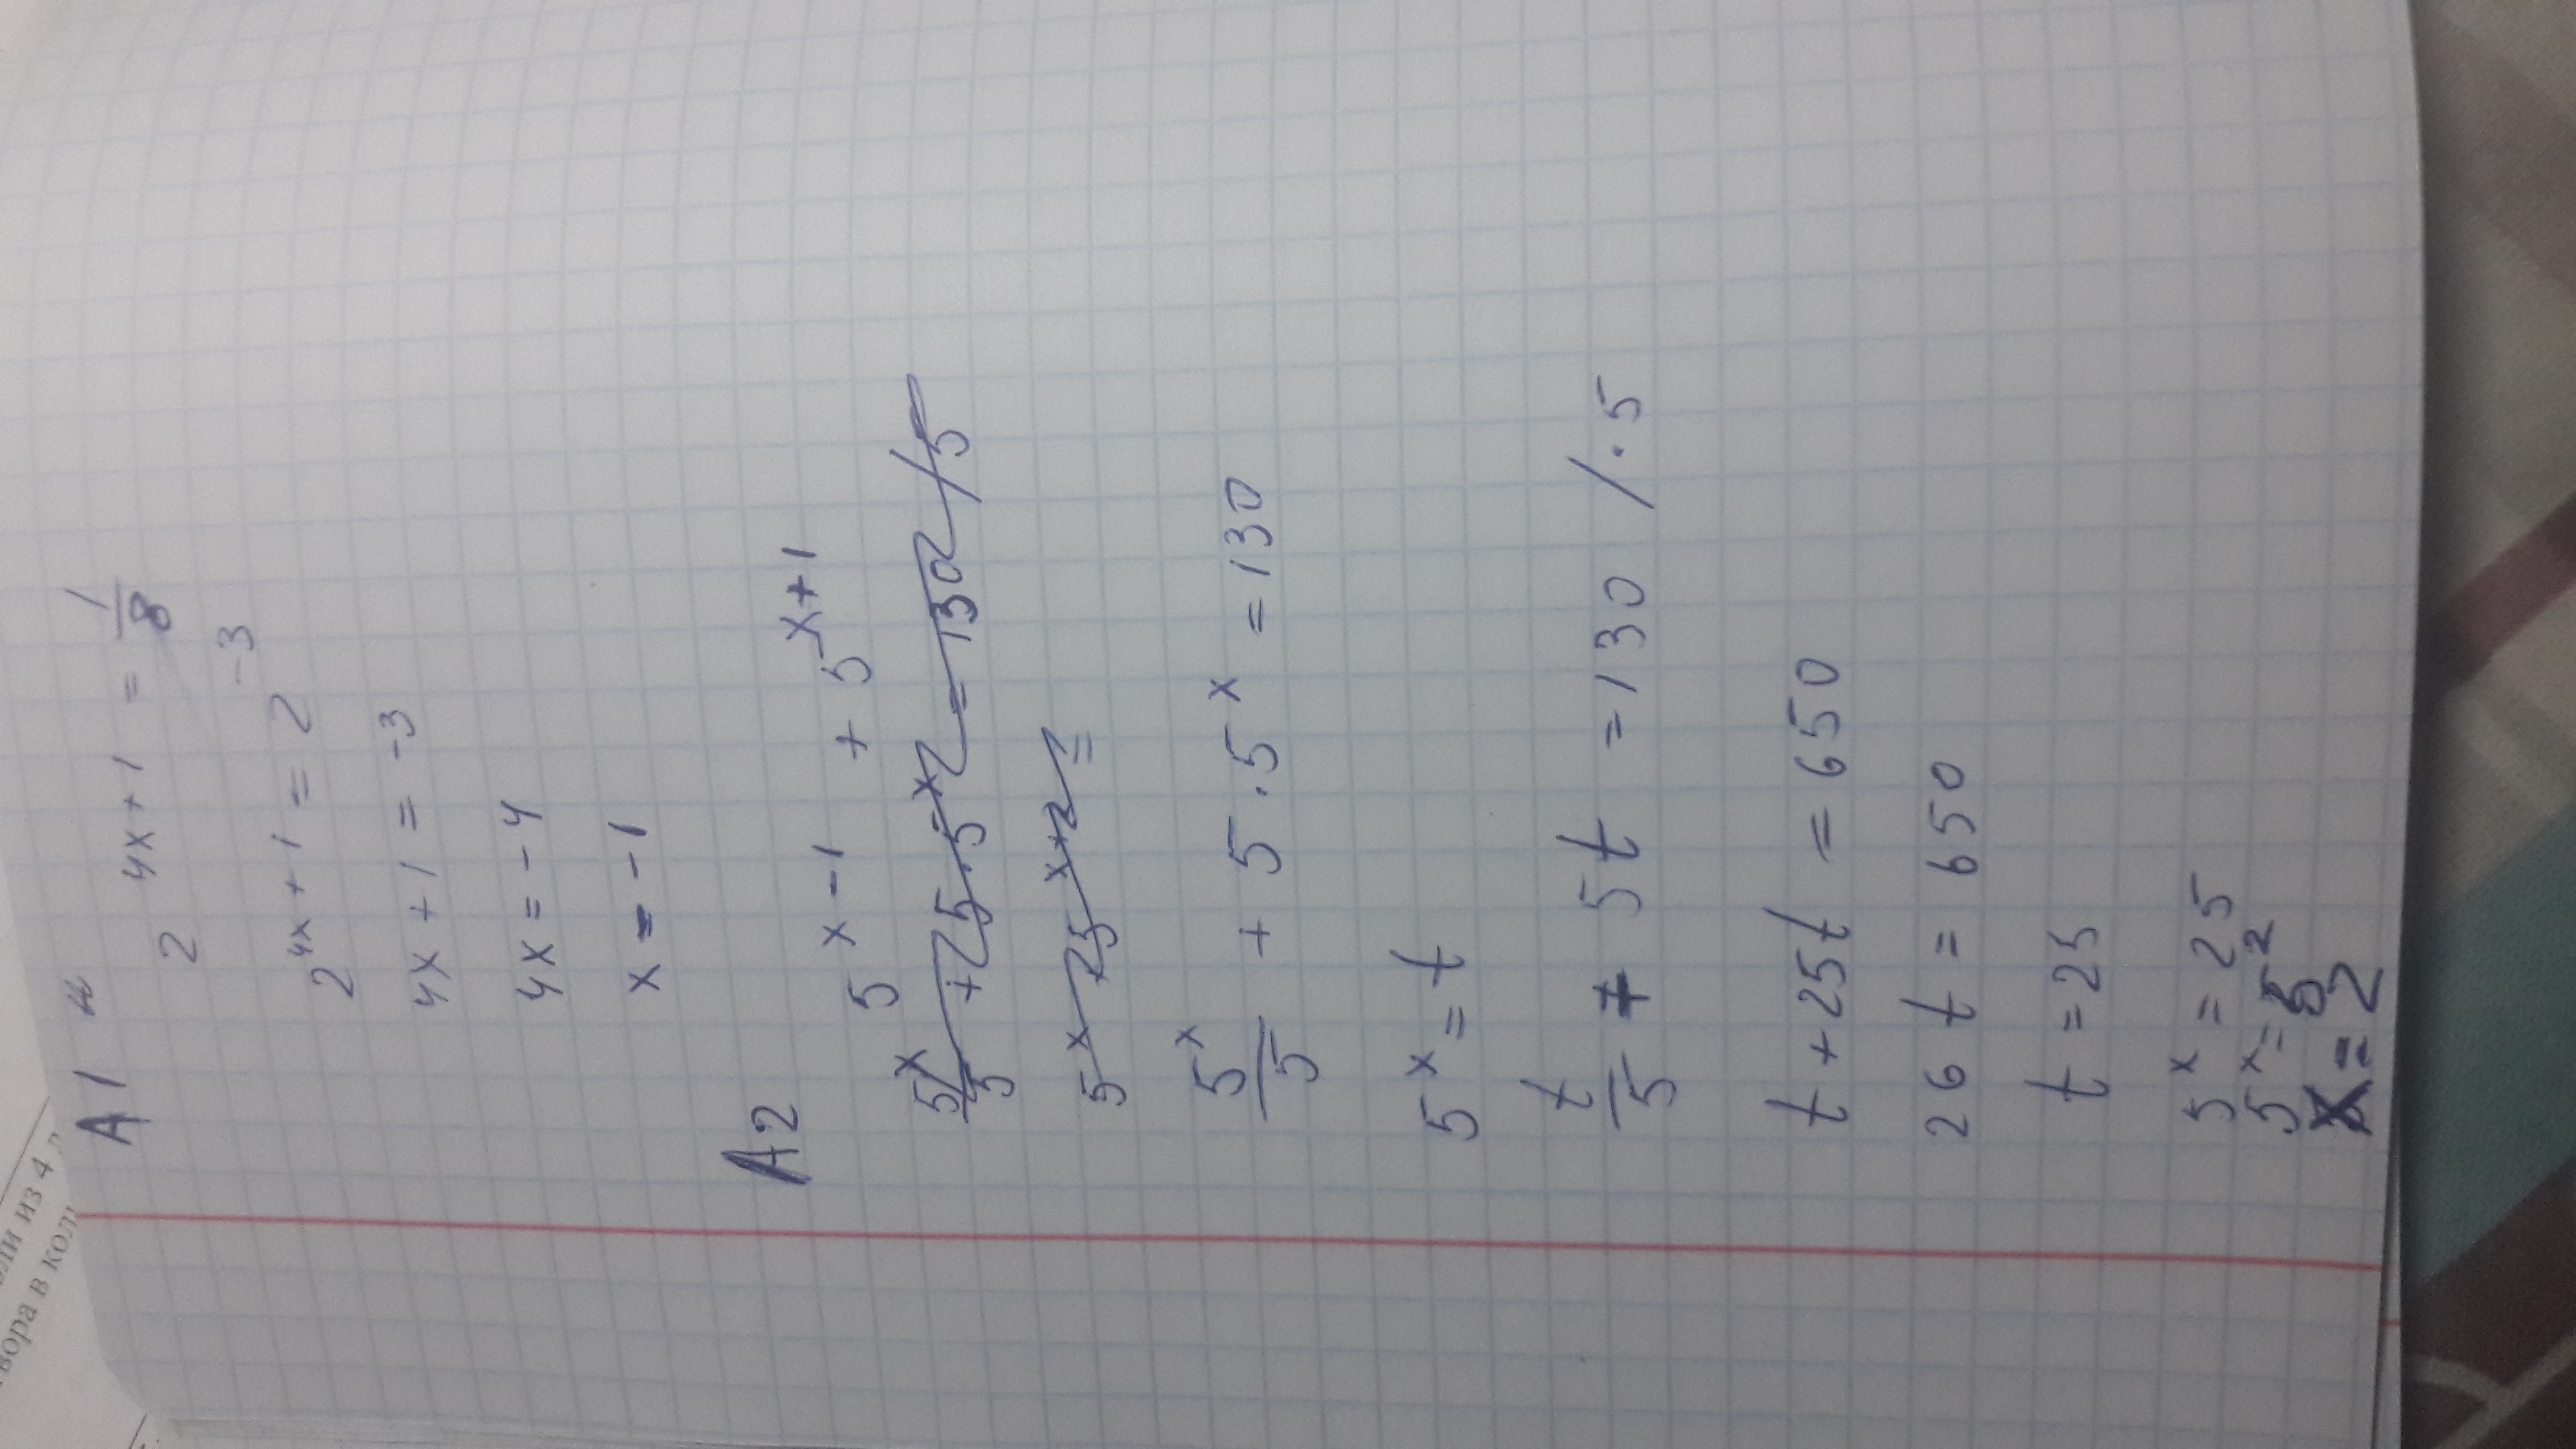 A1
2^(4x+1) = 1/8
2^(4x+1) = 2^(-3)
4x+1 = -3
4x = -4
x = -1
A2
5^(x-1) + 5^(x+1)
5^x/5 + 25·5^x = 130 / 5
5^x 25^(x+2) =
5^x/5 + 5·5^x = 130
5^x = t
t/5 + 5t = 130 /·5
t + 25t = 650
26t = 650
t = 25
5^x = 25
5^x = 5^2
x = 2
из 4
вора в кол